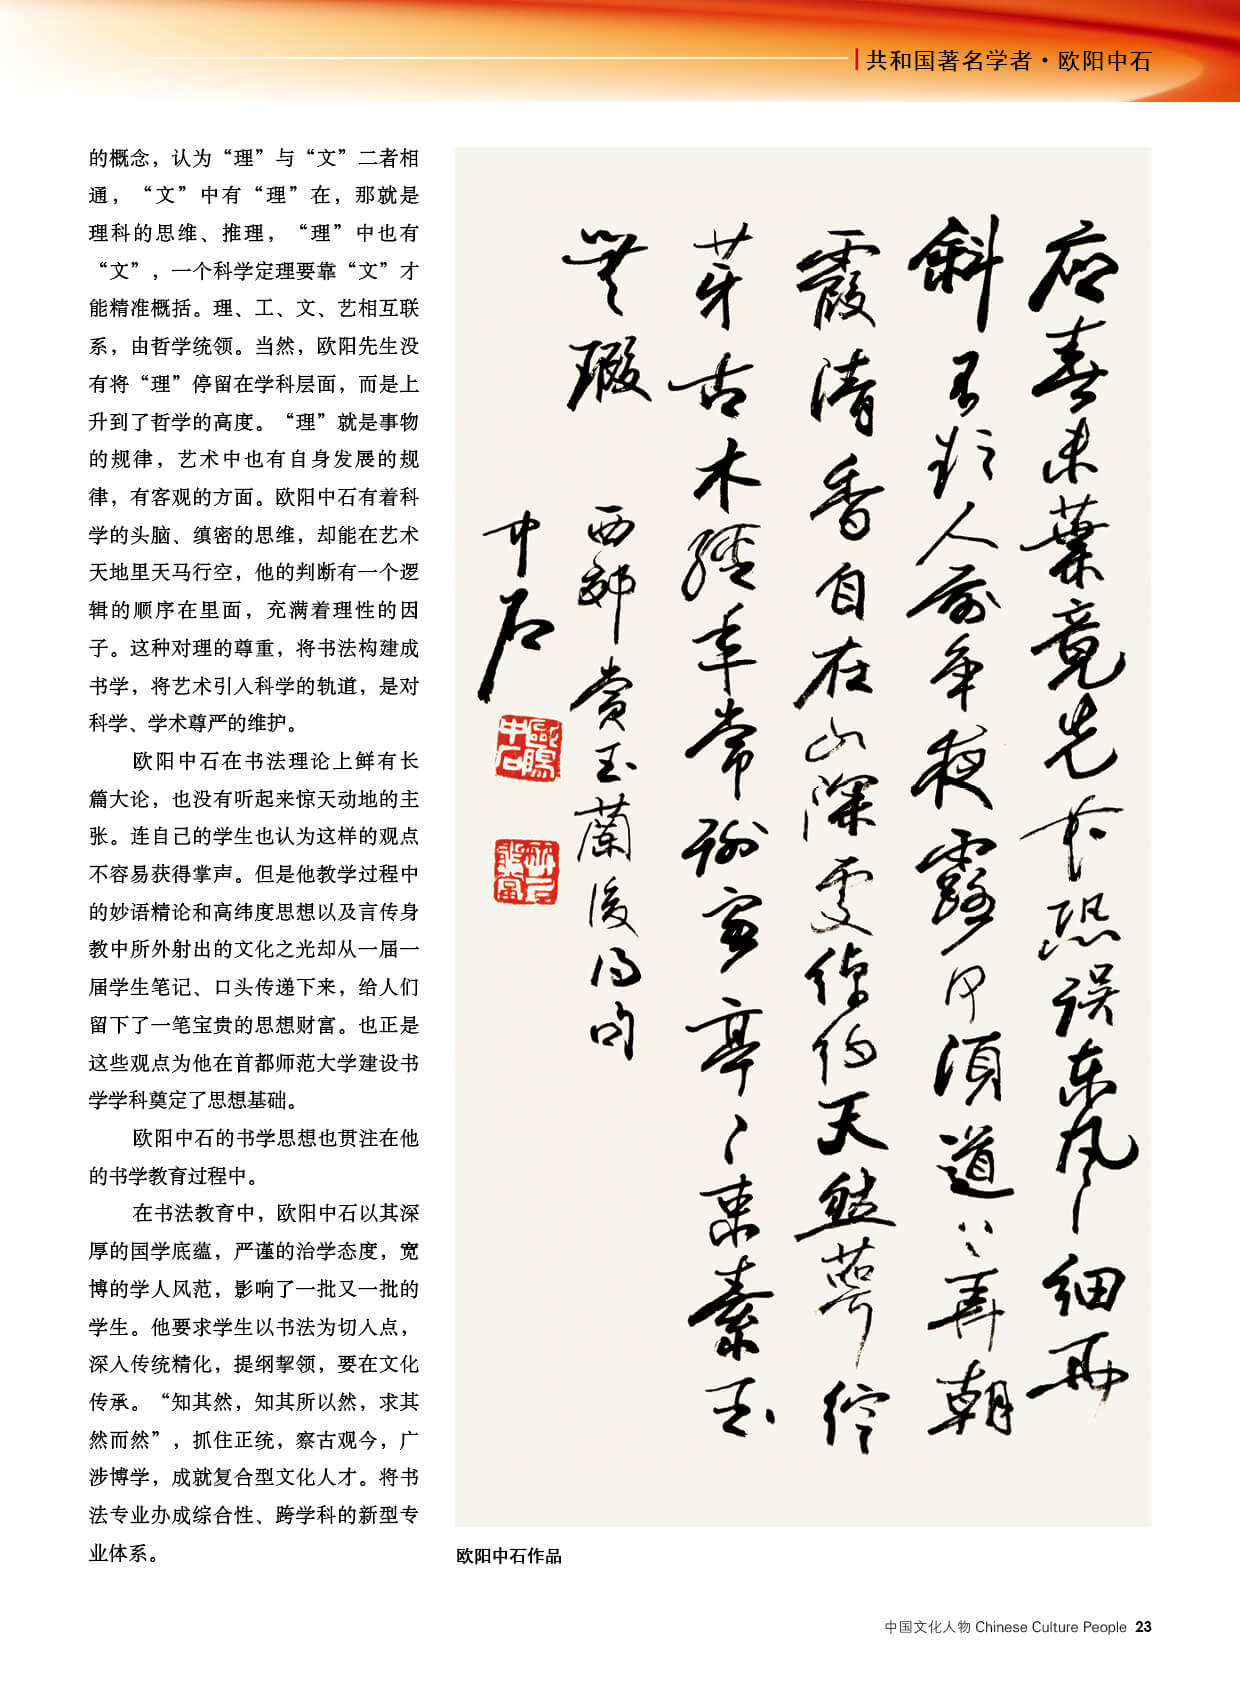 共和国著名学者·欧阳中石
的概念，认为“理”与“文”二者相
通，“文”中有“理”在，那就是
理科的思维、推理，“理”中也有
“文”，一个科学定理要靠“文”才
能精准概括。理、工、文、艺相互联
系，由哲学统领。当然，欧阳先生没
有将“理”停留在学科层面，而是上
升到了哲学的高度。“理”就是事物
的规律，艺术中也有自身发展的规
律，有客观的方面。欧阳中石有着科
学的头脑、缜密的思维，却能在艺术
天地里天马行空，他的判断有一个逻
辑的顺序在里面，充满着理性的因
子。这种对理的尊重，将书法构建成
书学，将艺术引入科学的轨道，是对
科学、学术尊严的维护。
欧阳中石在书法理论上鲜有长
篇大论，也没有听起来惊天动地的主
张。连自己的学生也认为这样的观点
不容易获得掌声。但是他教学过程中
的妙语精论和高纬度思想以及言传身
教中所外射出的文化之光却从一届一
届学生笔记、口头传递下来，给人们
留下了一笔宝贵的思想财富。也正是
这些观点为他在首都师范大学建设书
学学科奠定了思想基础。
欧阳中石的书学思想也贯注在他
的书学教育过程中。
在书法教育中，欧阳中石以其深
厚的国学底蕴，严谨的治学态度，宽
博的学人风范，影响了一批又一批的
学生。他要求学生以书法为切入点，
深入传统精化，提纲挈领，要在文化
传承。“知其然，知其所以然，求其
然而然”，抓住正统，察古观今，广
涉博学，成就复合型文化人才。将书
法专业办成综合性、跨学科的新型专
业体系。
应春未葉竟先花恐误东风细雨
斜於人前争夜露何須道再朝
霞清香自在山深绰约天然萼绽
芽古木經年常謝客亭亭束素玉
無瑕
西郊賞玉蘭後得句
中石
欧阳中石作品
中国文化人物 Chinese Culture People 23